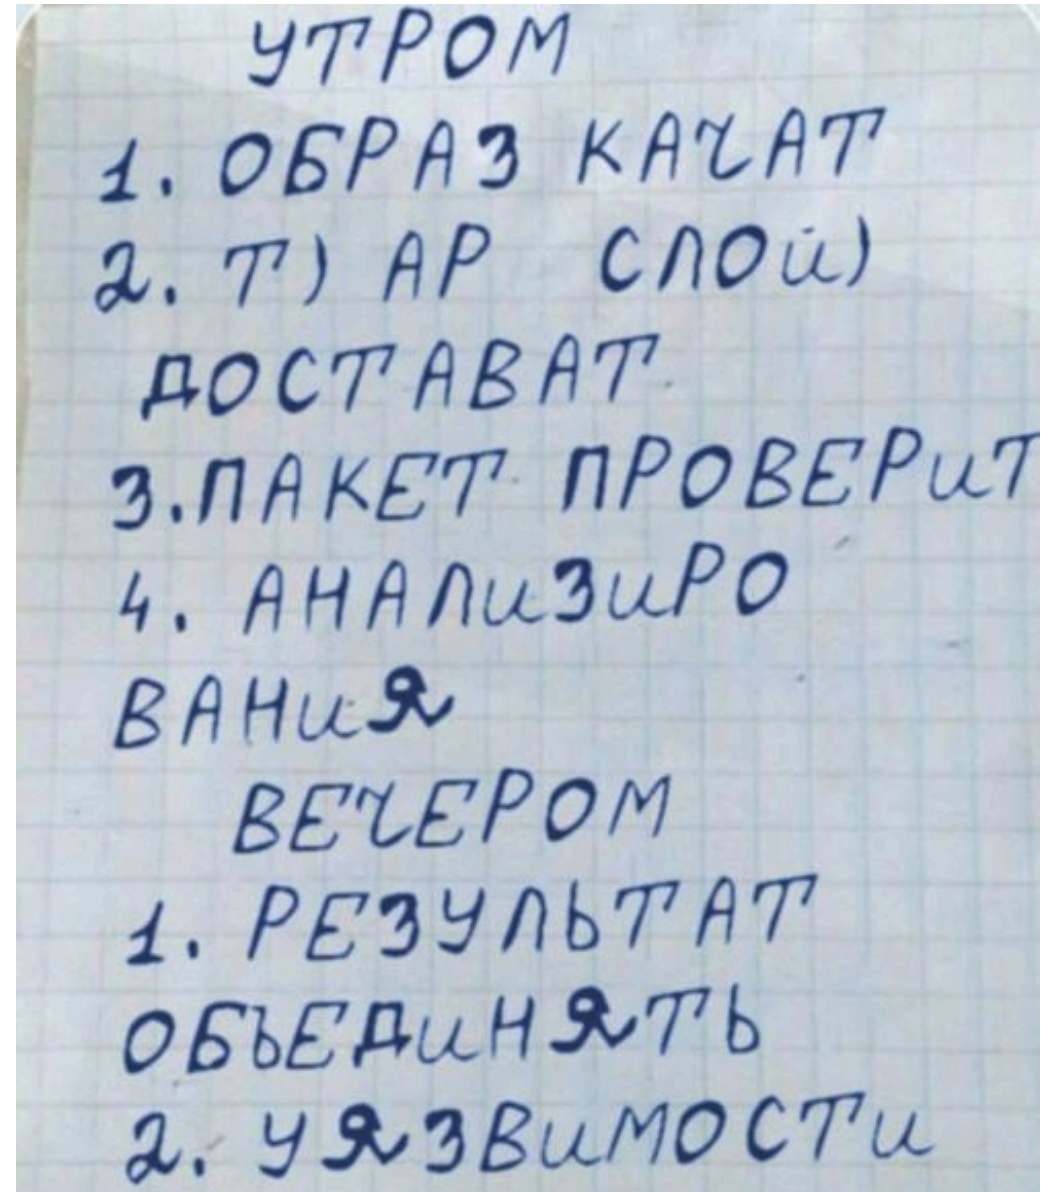 УТРОМ
1. ОБРАЗ КАЧАТ
2. Т) АР СЛОЙ)
ДОСТАВАТ
3.ПАКЕТ ПРОВЕРИТ
4. АНАЛИЗИРО
ВАНИЯ
ВЕЧЕРОМ
1. РЕЗУЛЬТАТ
ОБЪЕДИНЯТЬ
2. УЯЗВИМОСТИ